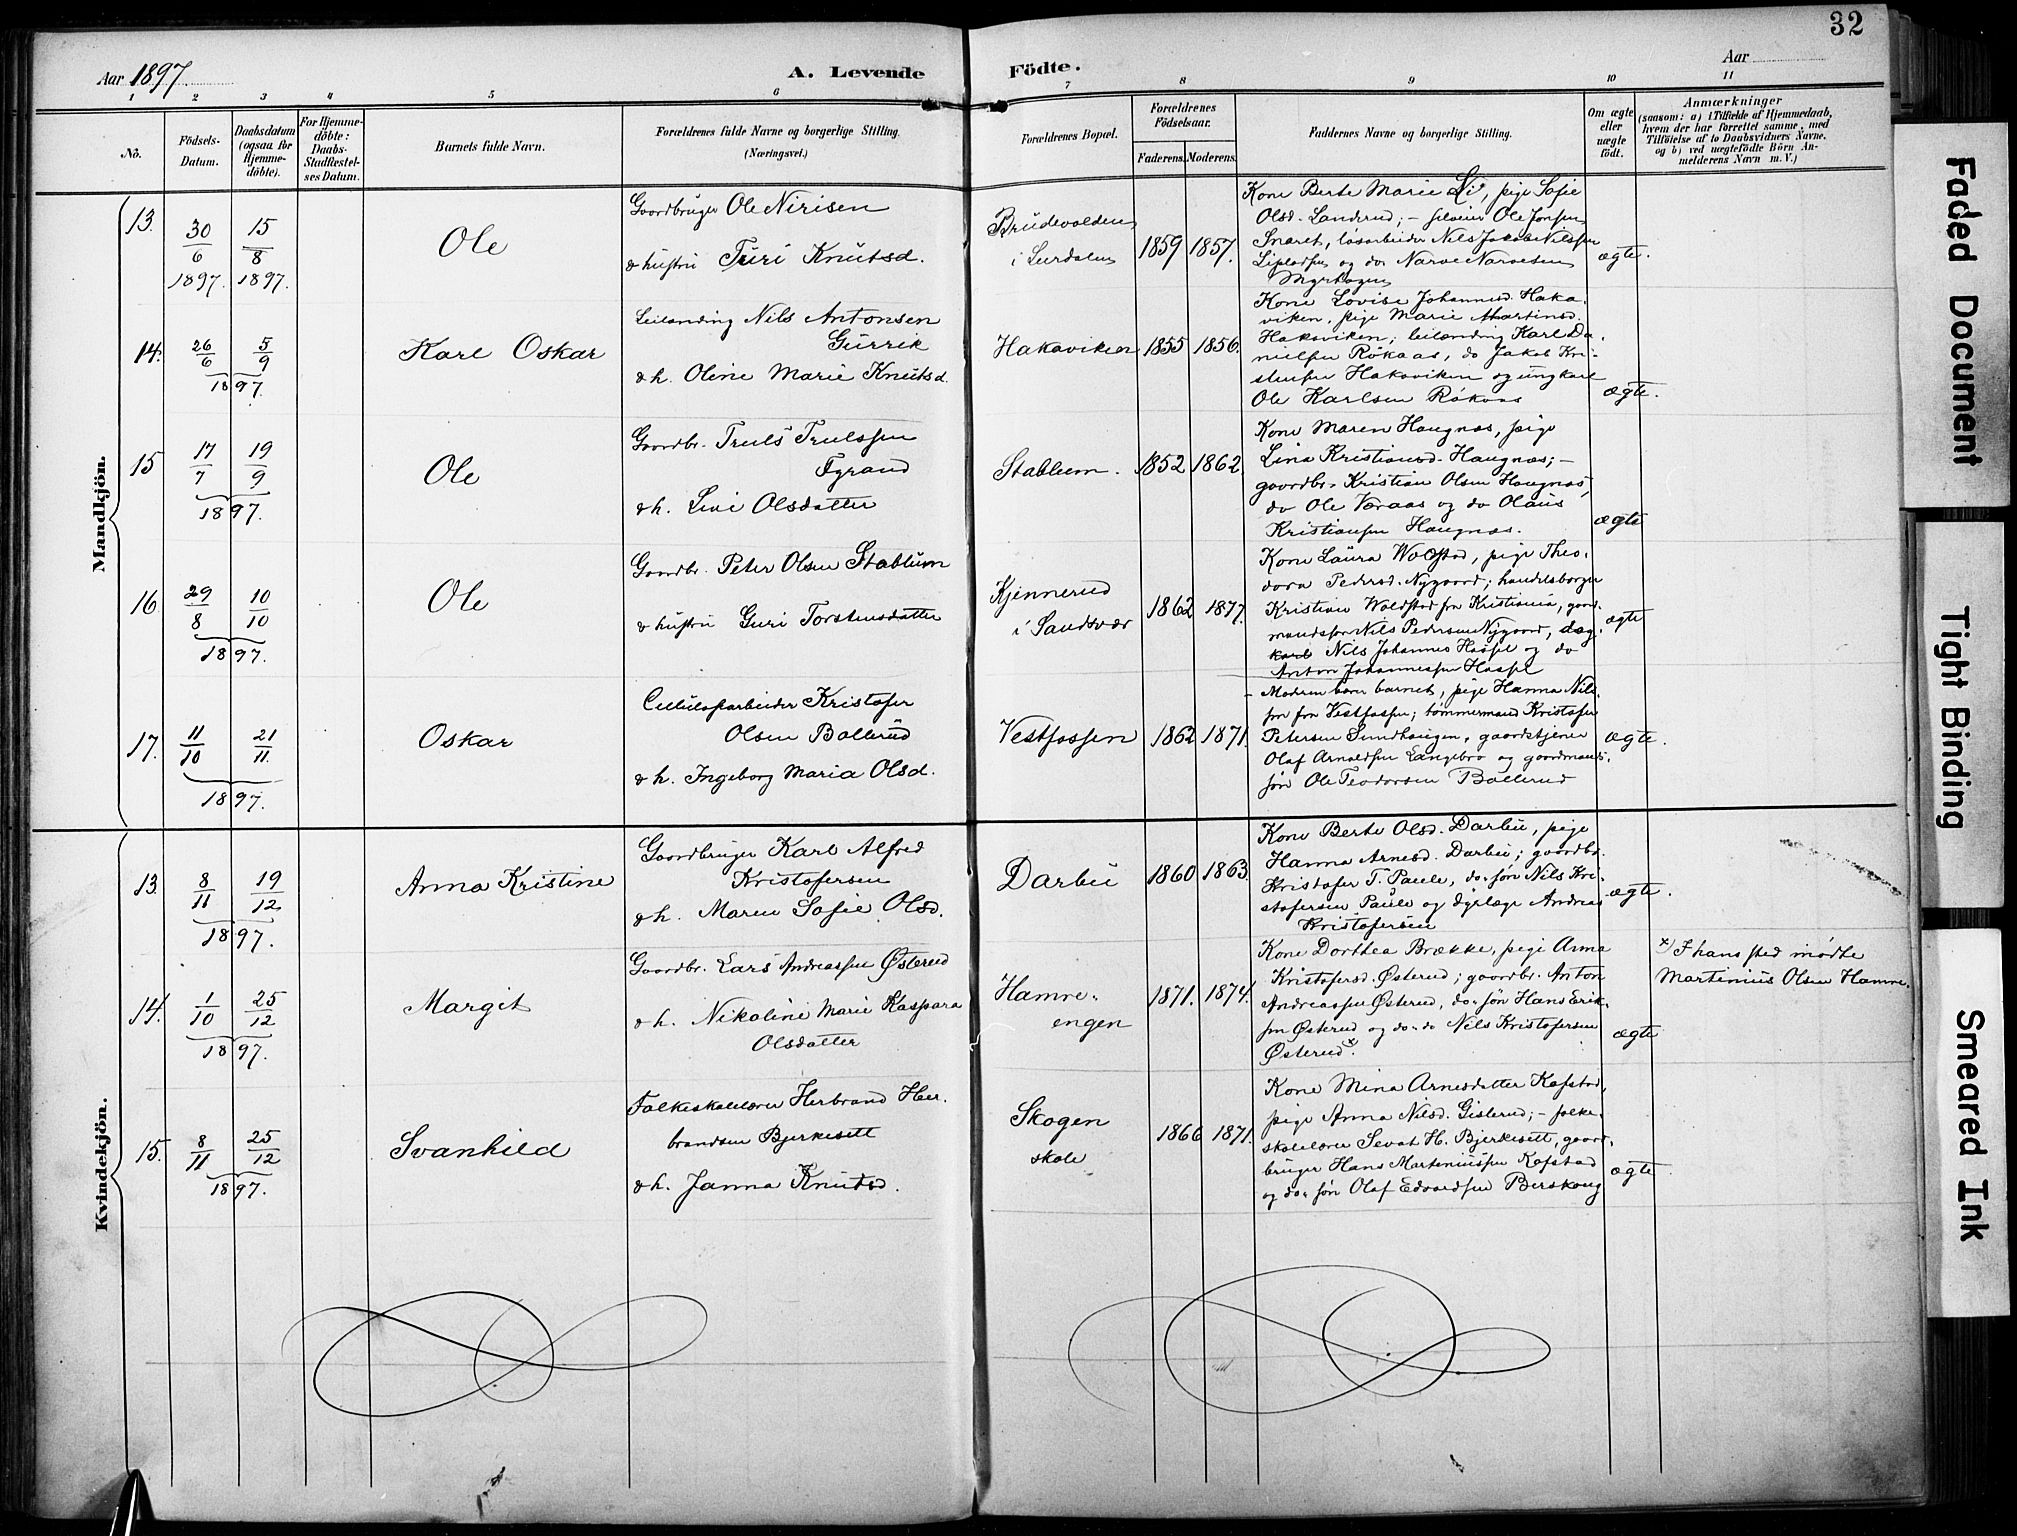 32
Aar 1897.
A. Levende
Födte.
Aar
1 2 3 4 5 6 7 8 9 10 11
No.
Födsels-
Datum.
Daabsdatum
(ogsaa for
Hjemme-
döbte).
For Hjemme-
döbte:
Daabs-
Stadfæstel-
ses Datum.
Barnets fulde Navn.
Forældrenes fulde Navne og borgerlige Stilling.
(Næringsvei.)
Forældrenes Bopæl.
Forældrenes
Födselsaar.
Faderens. Moderens.
Faddernes Navne og borgerlige Stilling.
Om ægte
eller
uægte
födt.
Anmærkninger
(saasom: a) i Tilfælde af Hjemmedaab,
hvem der har forrettet samme, med
Tilföielse af to Daabsvidners Navne.
og b) ved uægtefödte Börn An-
melderens Navn m. V.)
Mandkjön.
13.
30/6 15/8
1897. 1897.
Ole
Gaardbruger Ole Nirisen
& hustru Turi Knutsd.
Brudevolden
i Lurdalen
1859 1857.
Kone Berte Marie Li, pige Sofie
Olsd. Landerud; - Ole Jonsen
Snaret, løsarbeider Nils Jakob Nilssen
og do Narve Narvesen
Myrhagen
ægte.
14.
26/6 5/9
1897.
Karl Oskar
Leilænding Nils Antonsen
Gurrik
& h. Oline Marie Knutsd.
Hakaviken
1855 1856.
Kone Lovise Johannesd. Haka-
viken, pige Marie Martinsd.
Hakaviken; leilænding Karl Da-
nielsen Røkaas, do Jakob Kri-
stensen Hakaviken og ungkarl
Ole Karlsen Røkaas
ægte.
15
17/7 19/9
1897.
Ole
Gaardbr. Truls Trulssen
Fyrand
& h. Livi Olsdatter
Stablum.
1852 1862
Kone Maren Haugnæs, pige
Lina Kristiansd. Haugnæs; -
gaardbr. Kristian Olsen Haugnæs,
do Ole Varaas og do Olaus
Kristiansen Haugnæs.
ægte
16
29/8 10/10
1897.
Ole
Gaardbr. Peter Olsen Stablum
& hustru Guri Torstensdatter
Kjennerud
i Sandsvær
1862 1877.
Kone Laura Woldstad, pige Theo-
dora Pedersd. Nygaard; handelsborger
Kristian Woldstad fra Kristiania, gaard-
mandssøn Nils Pedersen Nygaard, dag-
karl Nils Johannes Hassel og do
Anton Johannessen Hassel
ægte
17.
11/10 21/11.
1897.
Oskar
Cellulosearbeider Kristofer
Olsen Bollerud
& h. Ingeborg Maria Olsd.
Vestfossen
1862 1871.
- Moderen barer barnet, pige Hanna Nils-
sen fra Vestfossen; tømmermand Kristofer
Petersen Sundhaugen, gaardstjener
Olaf Arnoldsen Langebro og gaardmans-
søn Ole Teodorsen Bollerud
ægte.
Kvindekjön.
13.
8/11 19/12
1897.
Anna Kristine
Gaardbruger Karl Alfred
Kristofersen
& h. Maren Sofie Olsd.
Darbu
1860 1863.
Kone Berte Olsd. Darbu, pige
Hanna Arnesd. Darbu; gaardbr.
Kristofer T. Paule, do. søn Nils Kri-
stofersen Paule og dyrlæge Andreas
Kristofersen
ægte.
14.
1/10 25/12
1897.
Margit
Gaardbr. Lars Andreassen Østerud
& h. Nikoline Marie Kaspara
Olsdatter
Hamre-
engen
1871. 1874.
Kone Dorthea Brække, pige Anna
Kristofersd. Østerud; gaardbr. Anton
Andreassen Østerud, do. søn Hans Erik-
sen Østerud og do. do Nils Kristofersen
Østerud x.
ægte
x) I hans sted mødte
Martinius Olsen Hamre.
15.
8/11 25/12
1897.
Svanhild
Folkeskolelærer Herbrand Her-
brandsen Bjerkesett
& h. Janna Knutsd.
Skogen
skole
1866 1871.
Kone Mina Arnesdatter Kofstad,
pige Anna Nilsd. Gislerud; - folke-
skolelærer Sevat H. Bjerkesett, gaard-
bruger Hans Marteniussen Kofstad
og do. søn Olaf Edvardsen Berskoug
ægte
Faded Document
Tight Binding
Smeared Ink